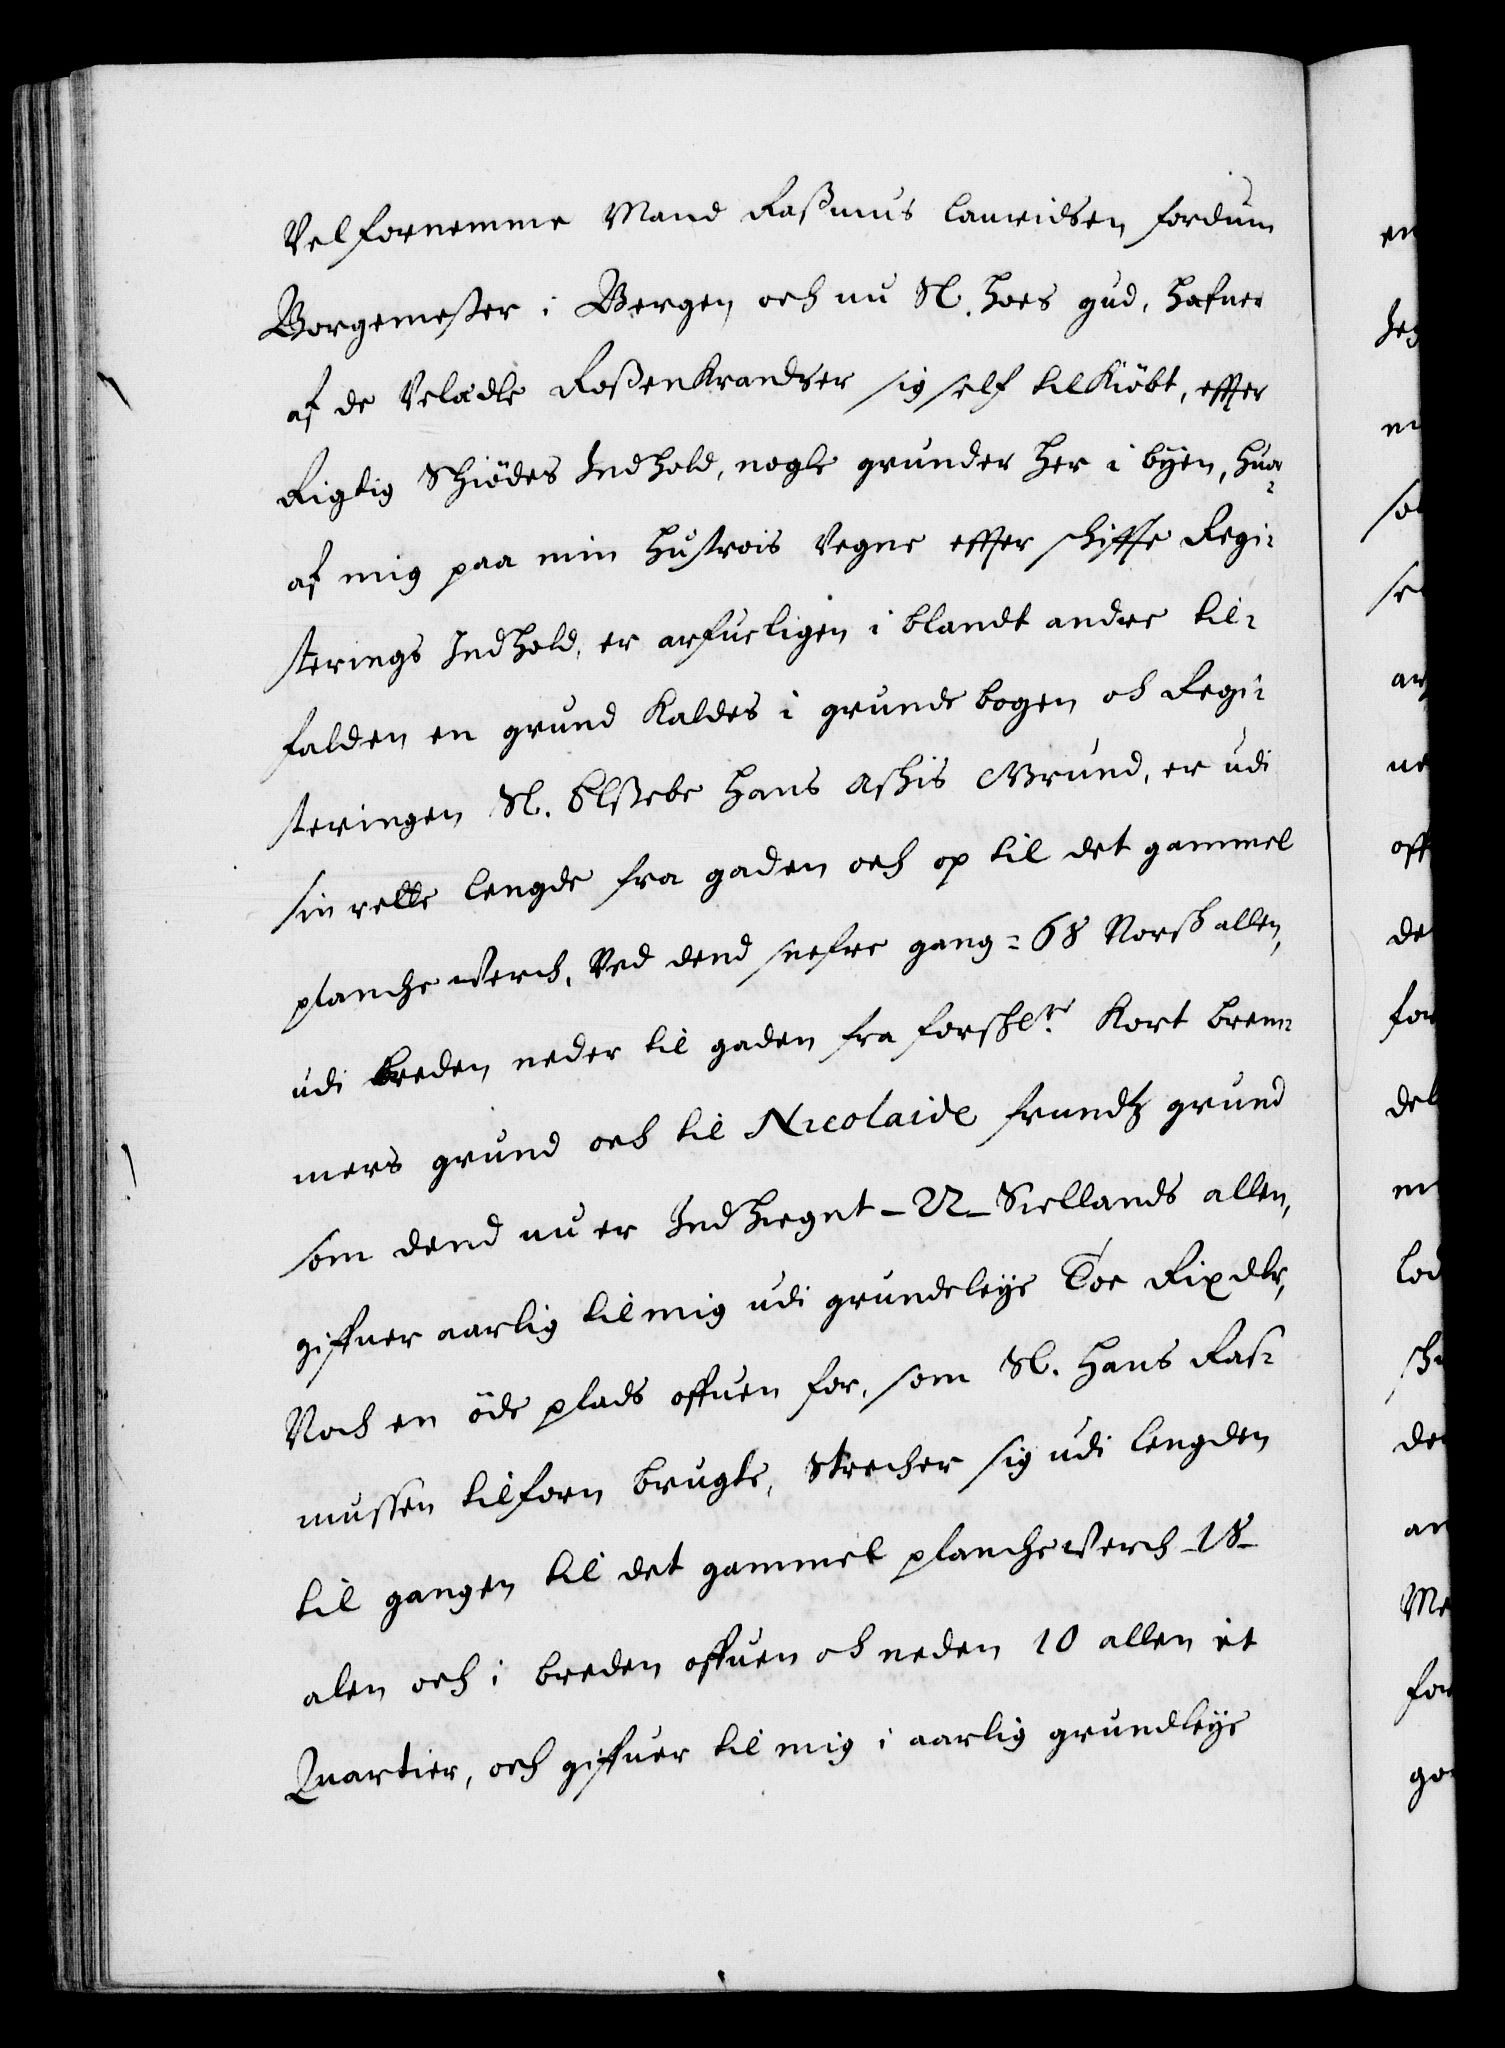 Velfornemme Mand Rasmus lauridsen fordum
Borgemester i Bergen och nu Sl. hoes gud, hafuer
af de Velædle Rosenkrandser sig self tilkiöbt, effter
Rigtig Schiödes Indhold, nogle grunder her i byen, huor¬
af mig paa min hustrois Vegne effter schiffte Regi¬
sterings Indhold, er arfueligen i blandt andre til¬
falden en grund kaldes i grunde bogen och Regi¬
steringen Sl. Elssebe Hans Aschis Grund, er udi
sin rette lengde fra gaden och op til det gammel
planche Verch, Ved dend snefre gang = 68 Norsk allen,
udi breden neder til gaden fra forschr:ne Kort brem¬
mers grund och til Nicolaide frundtz grund
som dend nu er Indhegnt – 22 – Siellands allen,
giffuer aarlig til mig udi grundeleije Toe Rixdlr,
Noch en öde plads offuen for, som Sl. Hans Ras¬
mussen tilforn brugte, strecher sig udi lengden
til gangen til det gammel planche Verch – 18 –
alen och i breden offuen och neden 10 allen et
Quartier, och giffuer til mig i aarlig grundleije